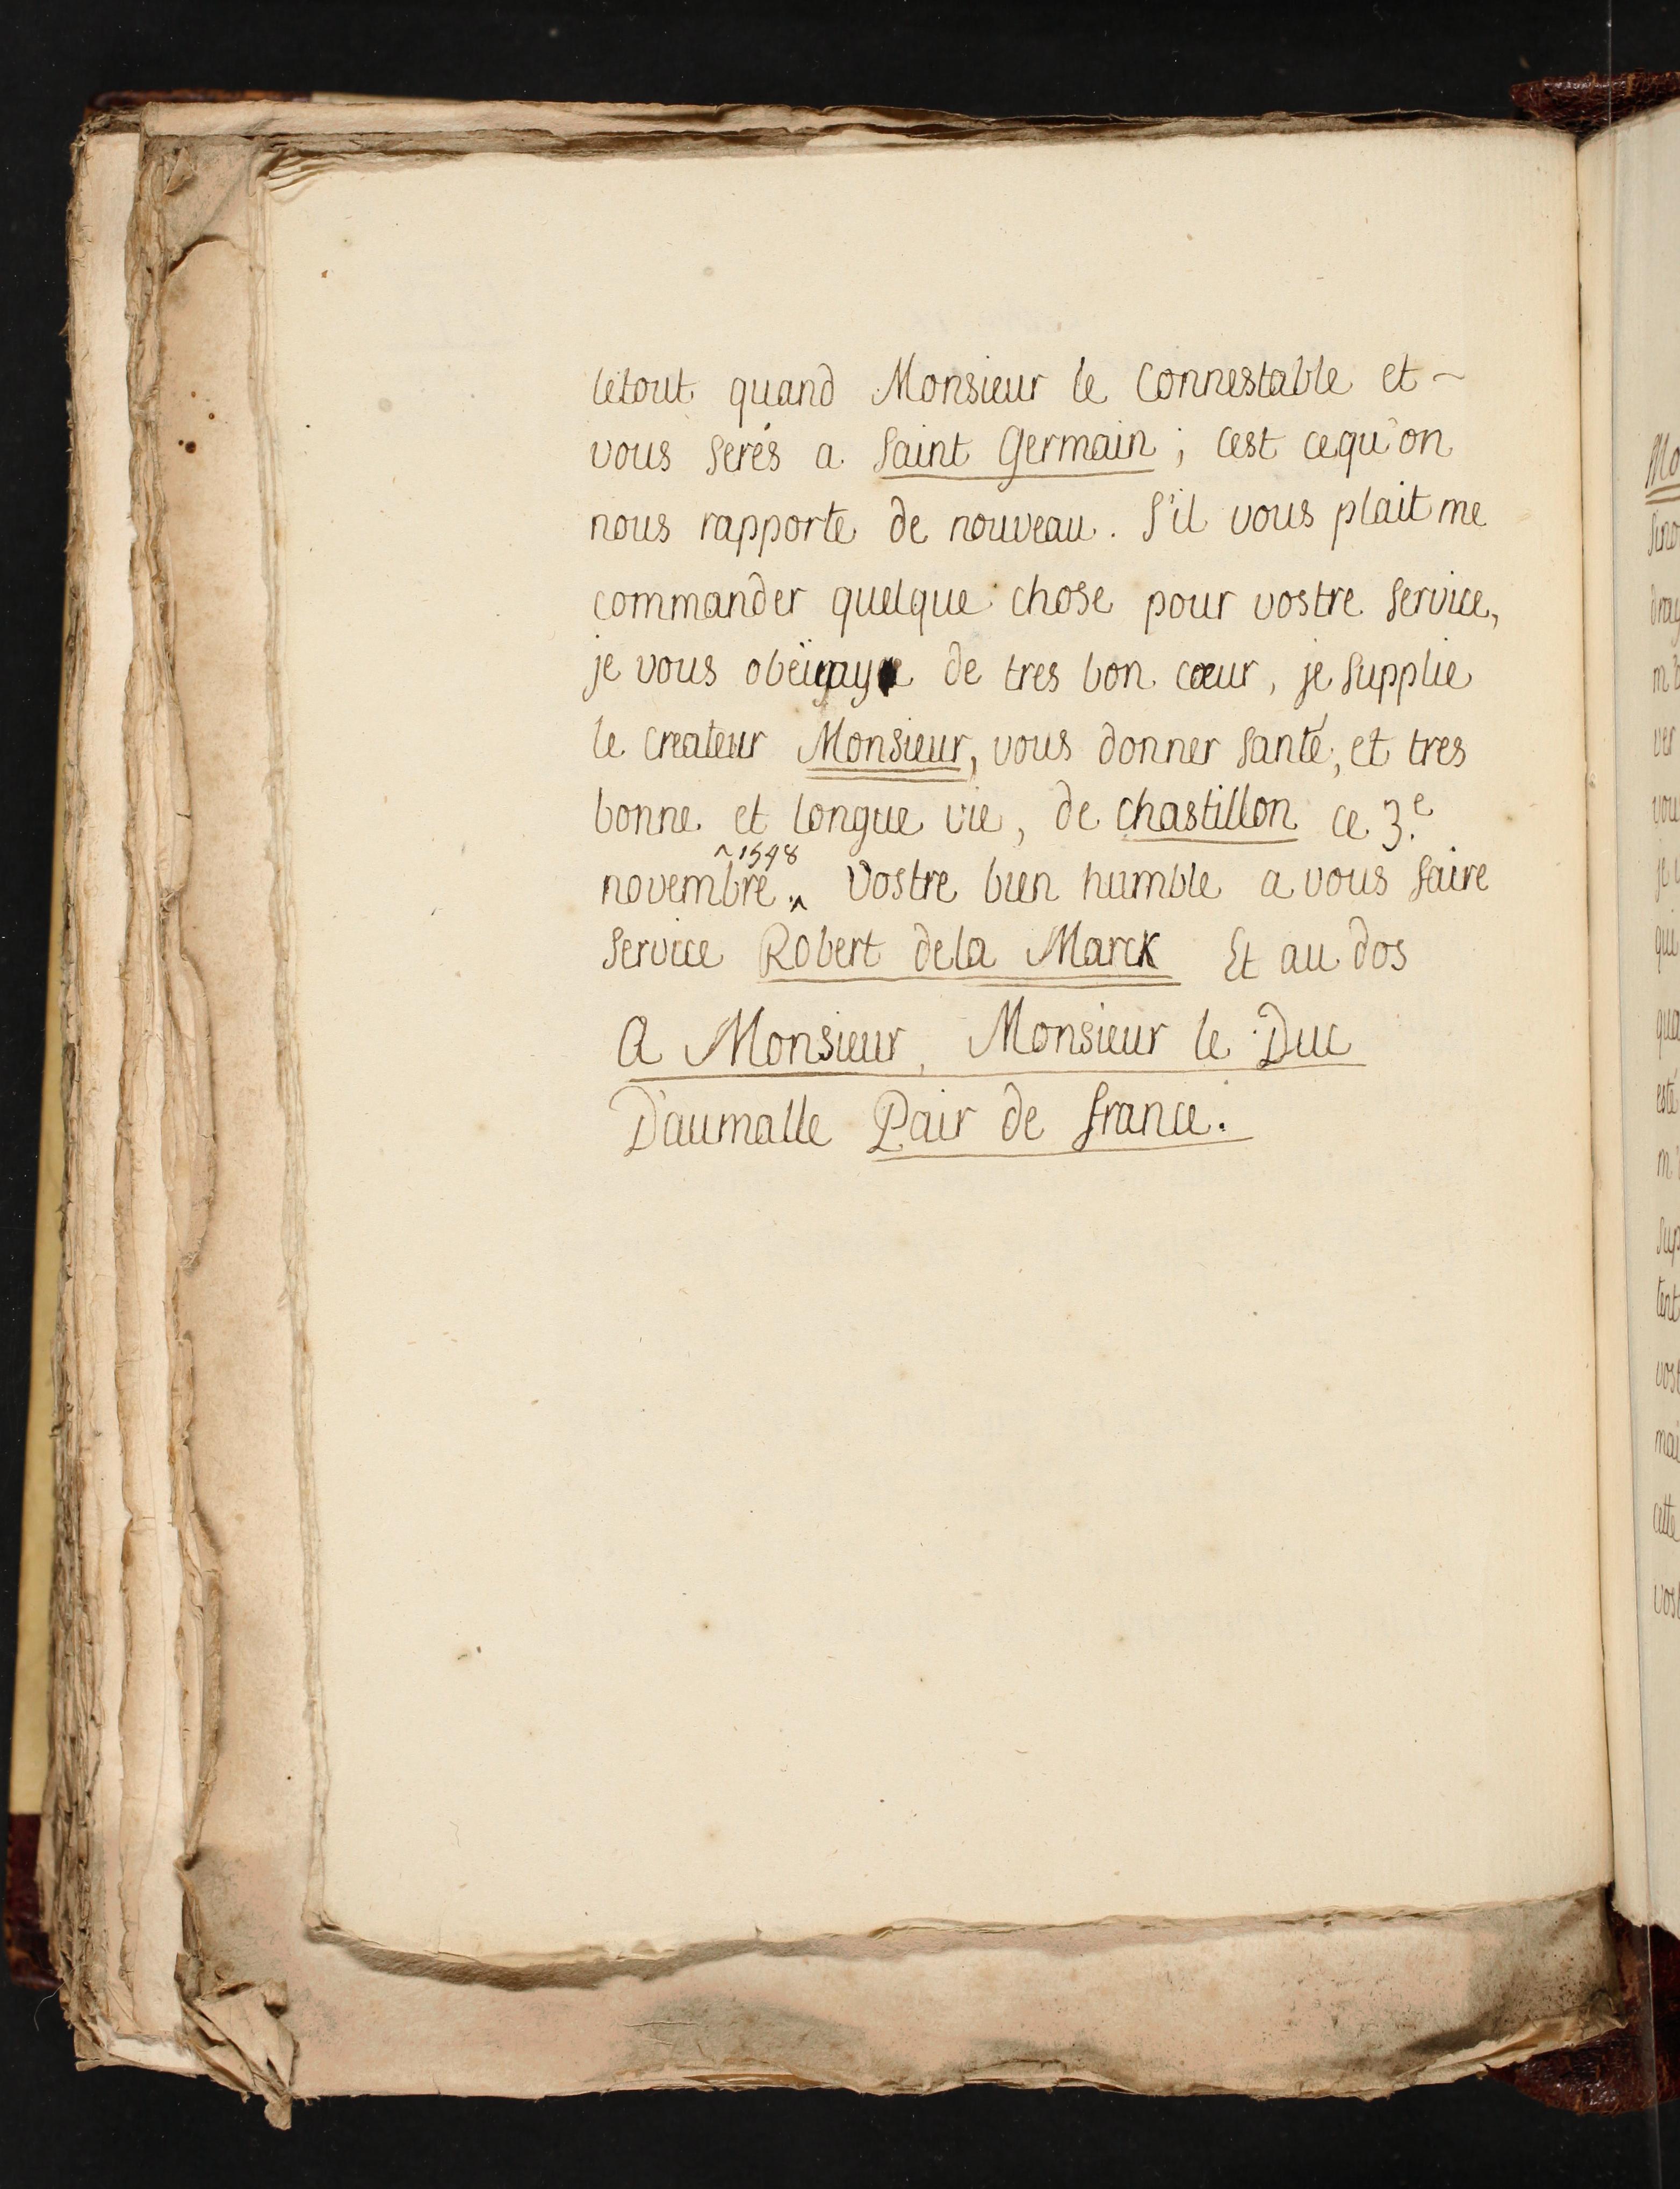 letout quand Monsieur le Connestable et ~
vous serés a Saint Germain ; cest cequ'on
nous rapporte de nouveau. S'il vous plait me
commander quelque chose pour vostre service,
je vous de tres bon cœur, je supplie
le createur Monsieur, vous donner santé, et tres
bonne et longue vie, de chastillon ce 3.e
^ 1548
novembre.^ Vostre bien humble a vous faire
service Robert dela Marck Et au dos
A Monsieur, Monsieur le Duc
D'aumalle Pair de france.